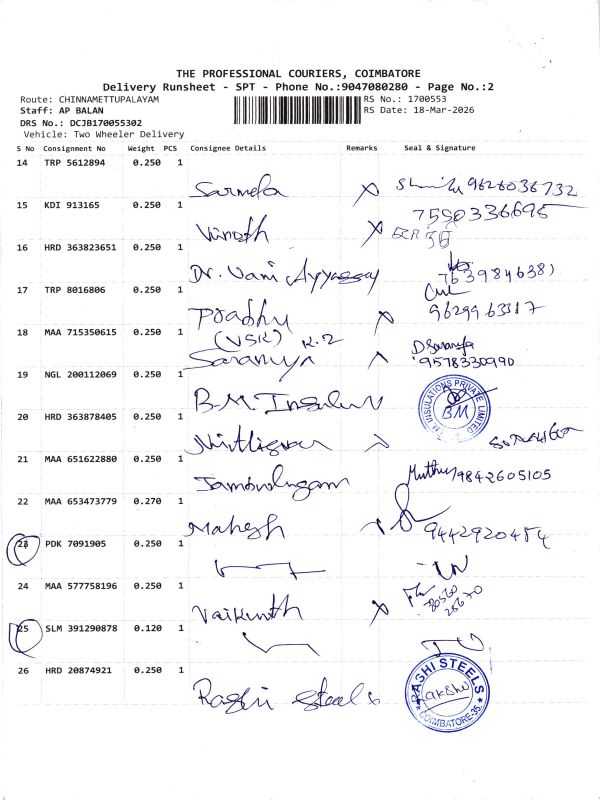 THE PROFESSIONAL COURIERS, COIMBATORE
Delivery Runsheet - SPT - Phone No.:9047080280 - Page No.:2
Route: CHINNAMETTUPALAYAM RS No.: 1700553
Staff: AP BALAN RS Date: 18-Mar-2026
DRS No.: DCJB170055302
Vehicle: Two Wheeler Delivery
S No Consignment No Weight PCS Consignee Details Remarks Seal & Signature
14 TRP 5612894 0.250 1
Sarmela 9626036732
15 KDI 913165 0.250 1
7550336695
Vinoth
16 HRD 363823651 0.250 1
Dr. Vani Ayyassay
7639846381
17 TRP 8016806 0.250 1
Prabhu 9629963317
(VSK) K.2
18 MAA 715350615 0.250 1
Saranya D Saranya
9578330990
19 NGL 200112069 0.250 1
B.M. Insulun
B.M. INSULATIONS PRIVATE LIMITED
BM
20 HRD 363878405 0.250 1
21 MAA 651622880 0.250 1
Jambulingam Muthu 9842605105
22 MAA 653473779 0.270 1
Mahesh 9442920454
23 PDK 7091905 0.250 1
24 MAA 577758196 0.250 1
Vaikunth
25 SLM 391290878 0.120 1
26 HRD 20874921 0.250 1
Rashi Steels
RASHI STEELS
COIMBATORE-35.